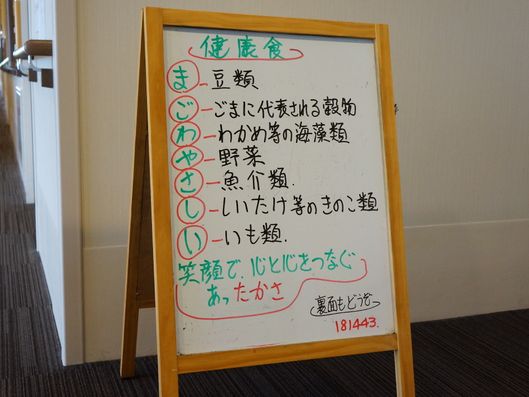 健康食
ま－豆類
ご－ごまに代表される穀物
わ－わかめ等の海藻類
や－野菜
さ－魚介類.
し－しいたけ等のきのこ類
い－いも類.
笑顔で、心と心をつなぐ
あったかさ
裏面もどうぞ〜
181443.